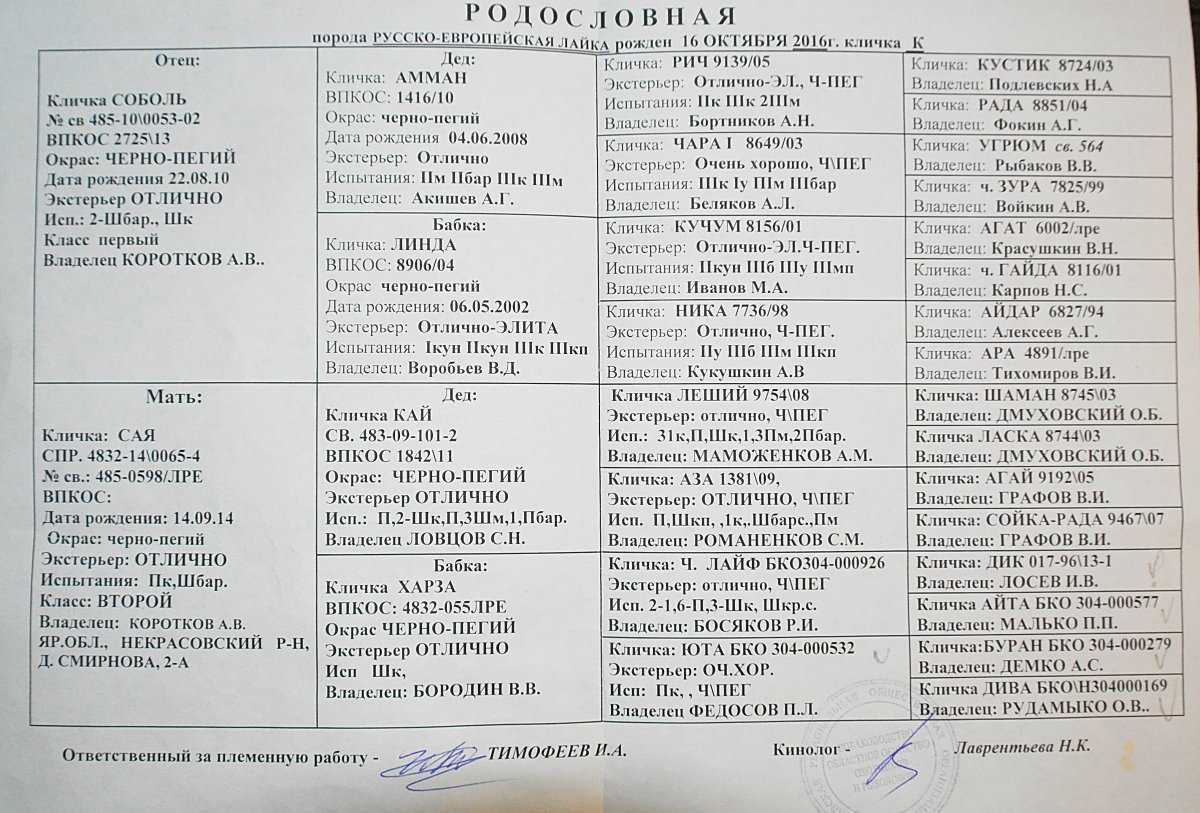 РОДОСЛОВНАЯ
порода РУССКО-ЕВРОПЕЙСКАЯ ЛАЙКА рожден 16 ОКТЯБРЯ 2016г. кличка К
Отец:
Кличка СОБОЛЬ
№ св 485-10\0053-02
ВПКОС 2725\13
Окрас: ЧЕРНО-ПЕГИЙ
Дата рождения 22.08.10
Экстерьер ОТЛИЧНО
Исп.: 2-Шбар., Шк
Класс первый
Владелец КОРОТКОВ А.В..
Дед:
Кличка: АММАН
ВПКОС: 1416/10
Окрас: черно-пегий
Дата рождения 04.06.2008
Экстерьер: Отлично
Испытания: IIм IIбар IIIк IIIм
Владелец: Акишев А.Г.
Бабка:
Кличка: ЛИНДА
ВПКОС: 8906/04
Окрас черно-пегий
Дата рождения: 06.05.2002
Экстерьер: Отлично-ЭЛИТА
Испытания: Iкун IIкун IIIк IIIкп
Владелец: Воробьев В.Д.
Кличка: РИЧ 9139/05
Экстерьер: Отлично-ЭЛ., Ч-ПЕГ
Испытания: IIк IIIк 2IIIм
Владелец: Бортников А.Н.
Кличка: ЧАРА I 8649/03
Экстерьер: Очень хорошо, Ч\ПЕГ
Испытания: IIIк Iу IIIм IIIбар
Владелец: Беляков А.Л.
Кличка: КУЧУМ 8156/01
Экстерьер: Отлично-ЭЛ.Ч-ПЕГ.
Испытания: IIкун IIIб IIIу IIIмп
Владелец: Иванов М.А.
Кличка: НИКА 7736/98
Экстерьер: Отлично, Ч-ПЕГ.
Испытания: IIу IIIб IIIм IIIкп
Владелец: Кукушкин А.В
Кличка: КУСТИК 8724/03
Владелец: Подлевских Н.А
Кличка: РАДА 8851/04
Владелец: Фокин А.Г.
Кличка: УГРЮМ св. 564
Владелец: Рыбаков В.В.
Кличка: ч. ЗУРА 7825/99
Владелец: Войкин А.В.
Кличка: АГАТ 6002/лре
Владелец: Красушкин В.Н.
Кличка: ч. ГАЙДА 8116/01
Владелец: Карпов Н.С.
Кличка: АЙДАР 6827/94
Владелец: Алексеев А.Г.
Кличка: АРА 4891/лре
Владелец: Тихомиров В.И.
Мать:
Кличка: САЯ
СПР. 4832-14\0065-4
№ св.: 485-0598/ЛРЕ
ВПКОС:
Дата рождения: 14.09.14
Окрас: черно-пегий
Экстерьер: ОТЛИЧНО
Испытания: Пк,Шбар.
Класс: ВТОРОЙ
Владелец: КОРОТКОВ А.В.
ЯР.ОБЛ., НЕКРАСОВСКИЙ Р-Н,
Д. СМИРНОВА, 2-А
Дед:
Кличка КАЙ
СВ. 483-09-101-2
ВПКОС 1842\11
Окрас: ЧЕРНО-ПЕГИЙ
Экстерьер ОТЛИЧНО
Исп.: П,2-Шк,П,3Шм,1,Пбар.
Владелец ЛОВЦОВ С.Н.
Бабка:
Кличка ХАРЗА
ВПКОС: 4832-055ЛРЕ
Окрас ЧЕРНО-ПЕГИЙ
Экстерьер ОТЛИЧНО
Исп Шк,
Владелец: БОРОДИН В.В.
Кличка ЛЕШИЙ 9754\08
Экстерьер: отлично, Ч\ПЕГ
Исп.: 31к,П,Шк,1,3Пм,2Пбар.
Владелец: МАМОЖЕНКОВ А.М.
Кличка: АЗА 1381\09,
Экстерьер: ОТЛИЧНО, Ч\ПЕГ
Исп. П,Шкп, ,1к,.Шбарс.,Пм
Владелец: РОМАНЕНКОВ С.М.
Кличка: Ч. ЛАЙФ БКО304-000926
Экстерьер: отлично, Ч\ПЕГ
Исп. 2-1,6-П,3-Шк, Шкр.с.
Владелец: БОСЯКОВ Р.И.
Кличка: ЮТА БКО 304-000532
Экстерьер: ОЧ.ХОР.
Исп: Пк, , Ч\ПЕГ
Владелец ФЕДОСОВ П.Л.
Кличка: ШАМАН 8745\03
Владелец: ДМУХОВСКИЙ О.Б.
Кличка ЛАСКА 8744\03
Владелец: ДМУХОВСКИЙ О.Б.
Кличка: АГАЙ 9192\05
Владелец: ГРАФОВ В.И.
Кличка: СОЙКА-РАДА 9467\07
Владелец: ГРАФОВ В.И.
Кличка: ДИК 017-96\13-1
Владелец: ЛОСЕВ И.В.
Кличка АЙТА БКО 304-000577
Владелец: МАЛЬКО П.П.
Кличка:БУРАН БКО 304-000279
Владелец: ДЕМКО А.С.
Кличка ДИВА БКО\Н304000169
Владелец: РУДАМЫКО О.В..
Ответственный за племенную работу - ТИМОФЕЕВ И.А.
Кинолог - Лаврентьева Н.К.